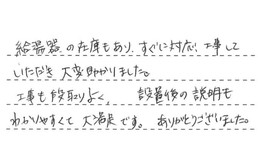 給湯器の在庫もあり、すぐに対応、工事して
いただき大変助かりました。
工事も段取りよく、設置後の説明も
わかりやすくて大満足です。ありがとうございました。